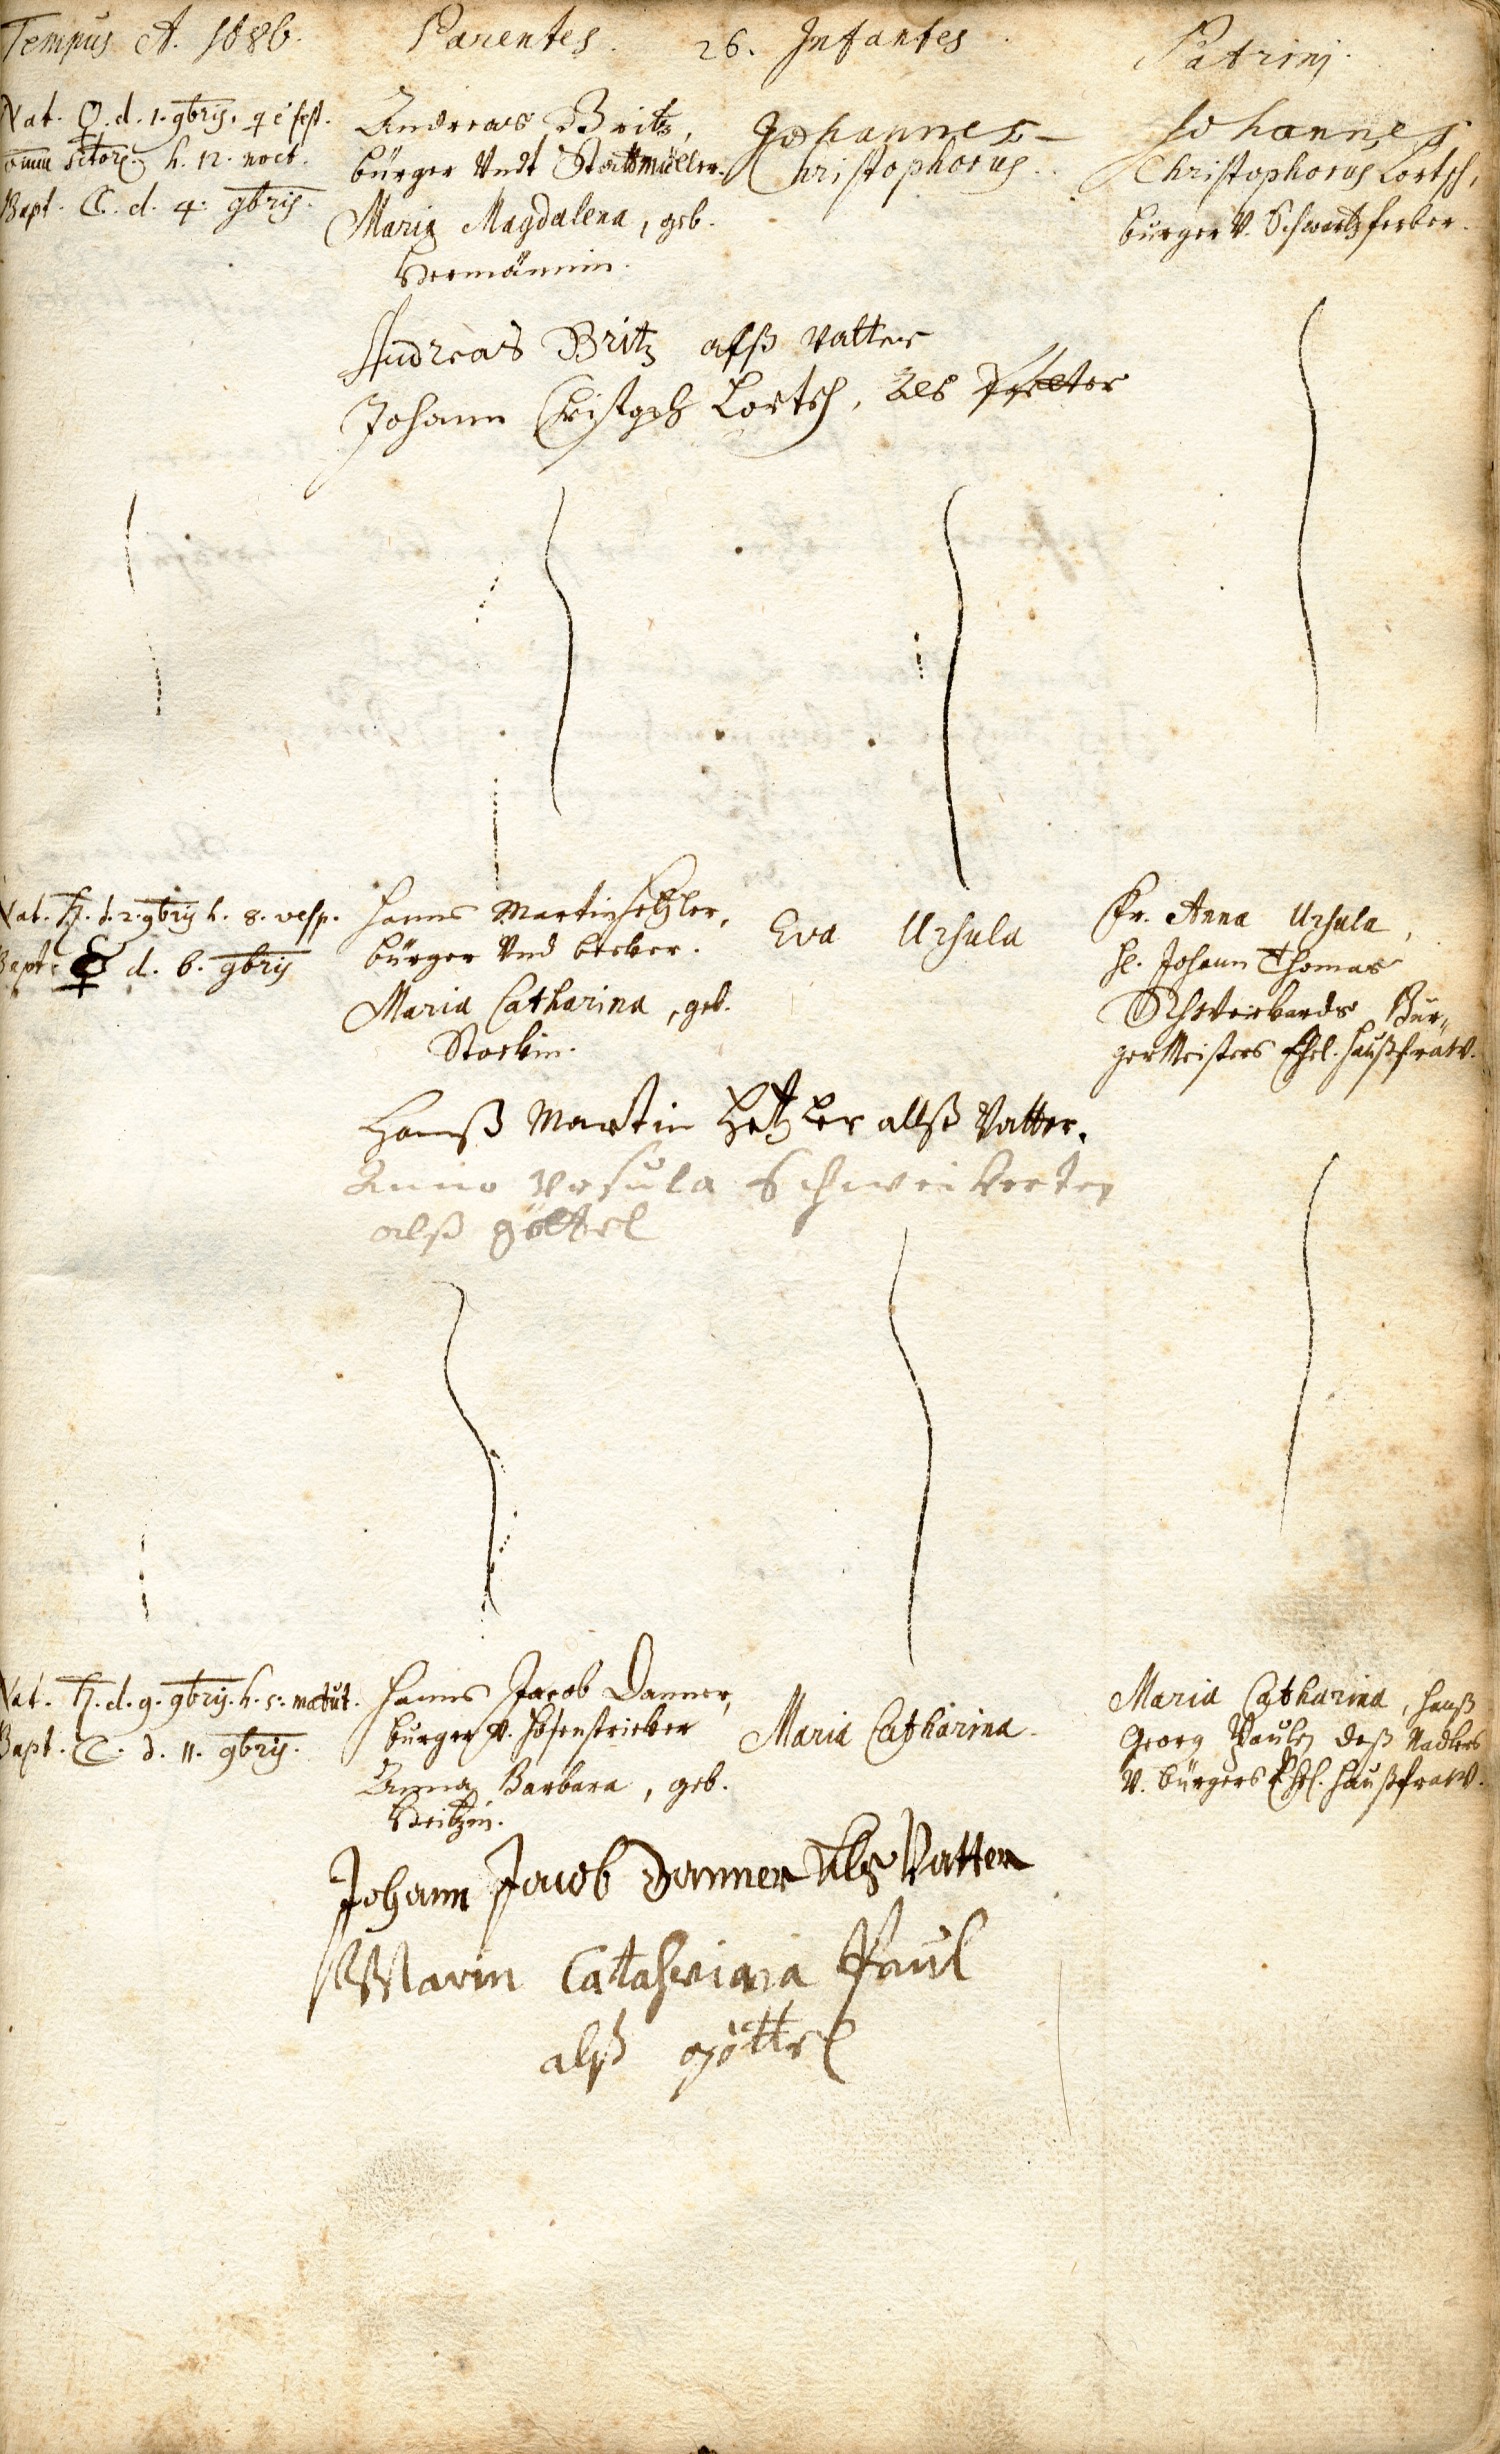 Tempus A. 1686. Parentes. 26. Infantes. Patrinj.
Nat. ♀. d. 1. 9bris. q̃ ẽ fest.
omn[iu]m s[an]ctor[um]. h. 12. noct.
Bapt. ☾. d. 4. 9bris.
Andreas Britz,
bürger Undt Stattmüller.
Maria Magdalena, geb.
Hermännin.
Johannes
Christophorus.
Johannes
Christophorus Lortsch,
burger V. Schwartzferber.
Andreas Britz alß Vatter
Johann Christoph Lortsch, als
Nat. ♄. d. 2. 9bris h. 8. vesp.
Bapt. ☿ d. 6. 9bris
Hanns Martin Hetzler,
bürger Und becker.
Maria Catharina, geb.
Stockin.
Eva Ursula
Fr. Anna Ursula,
H. Johann Thomas
Schweickards Bur„
germeisters Ehel. Haußfraw.
Hanß Martin Hetzler allß Vatter.
Anna Vrsula Schweickerten
alß göttel
Nat. ♄. d. 9. 9bris. h. 5. matut.
Bapt. ☾. d. 11. 9bris.
Hanns Jacob Danner,
burger V. Hosenstricker
Anna Barbara, geb.
Britzin.
Maria Catharina.
Maria Catharina, Hanß
Georg Paules deß Nadlers
V. bürgers Ehel. Haußfraw.
Johann Jacob Danner Als Vatter
Maria Catharina Paul
alß göttel